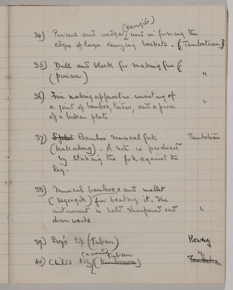 34) Pincers and wedge (sangib) used in forming the
edges of large carrying baskets. { Tambatuan }
35) Drill and block for making fire {
(pusan) "
36) Fire making apparatus consisting of
a joint of bamboo, tinder, and a piece
of a broken plate "
37) Bamboo musical fork Tambatuan
. A note is produced
by striking the fork against the
leg.
38) Musical bamboos and mallet
for beating it. The
instrument is held
downwards "
39) Boy's top (
40) Child's toy (